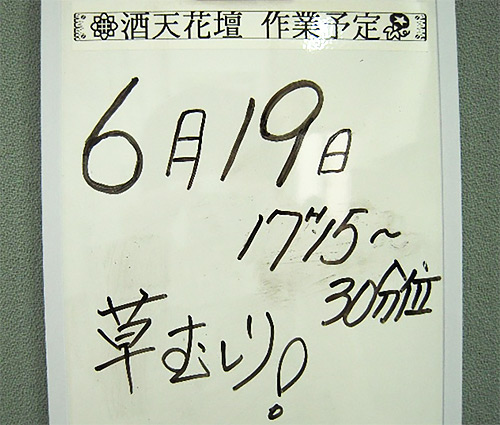 酒天花壇 作業予定
6月19日
17〃15〜
30分位
草むしり!